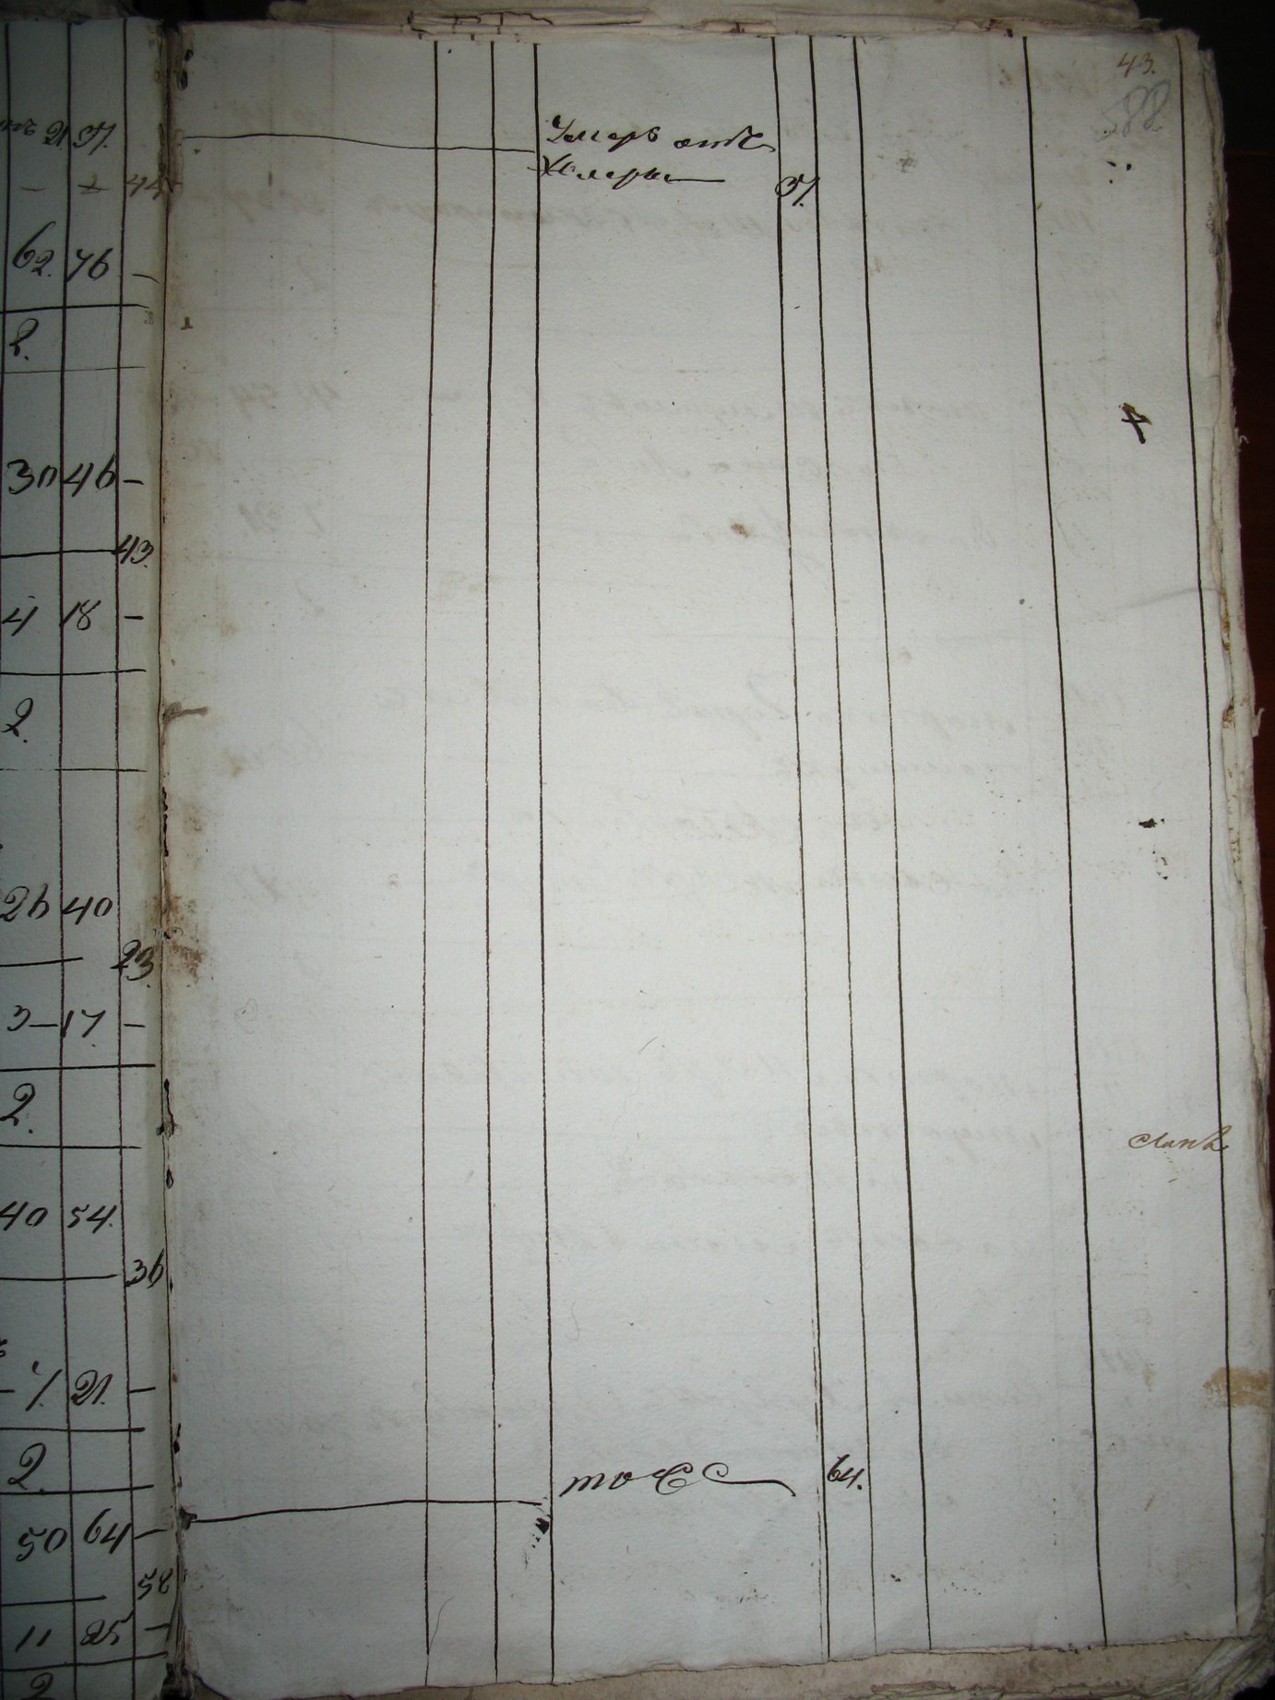 43.
588
21 37.
44
Умеръ отъ
Холеры 37.
62. 76 —
2.
30 46 —
43.
4 18 —
2.
26 40
23.
3 — 17 —
2.
40 54.
36
7. 21. —
2.
тоже 64.
50 64 —
58
11 25 —
2